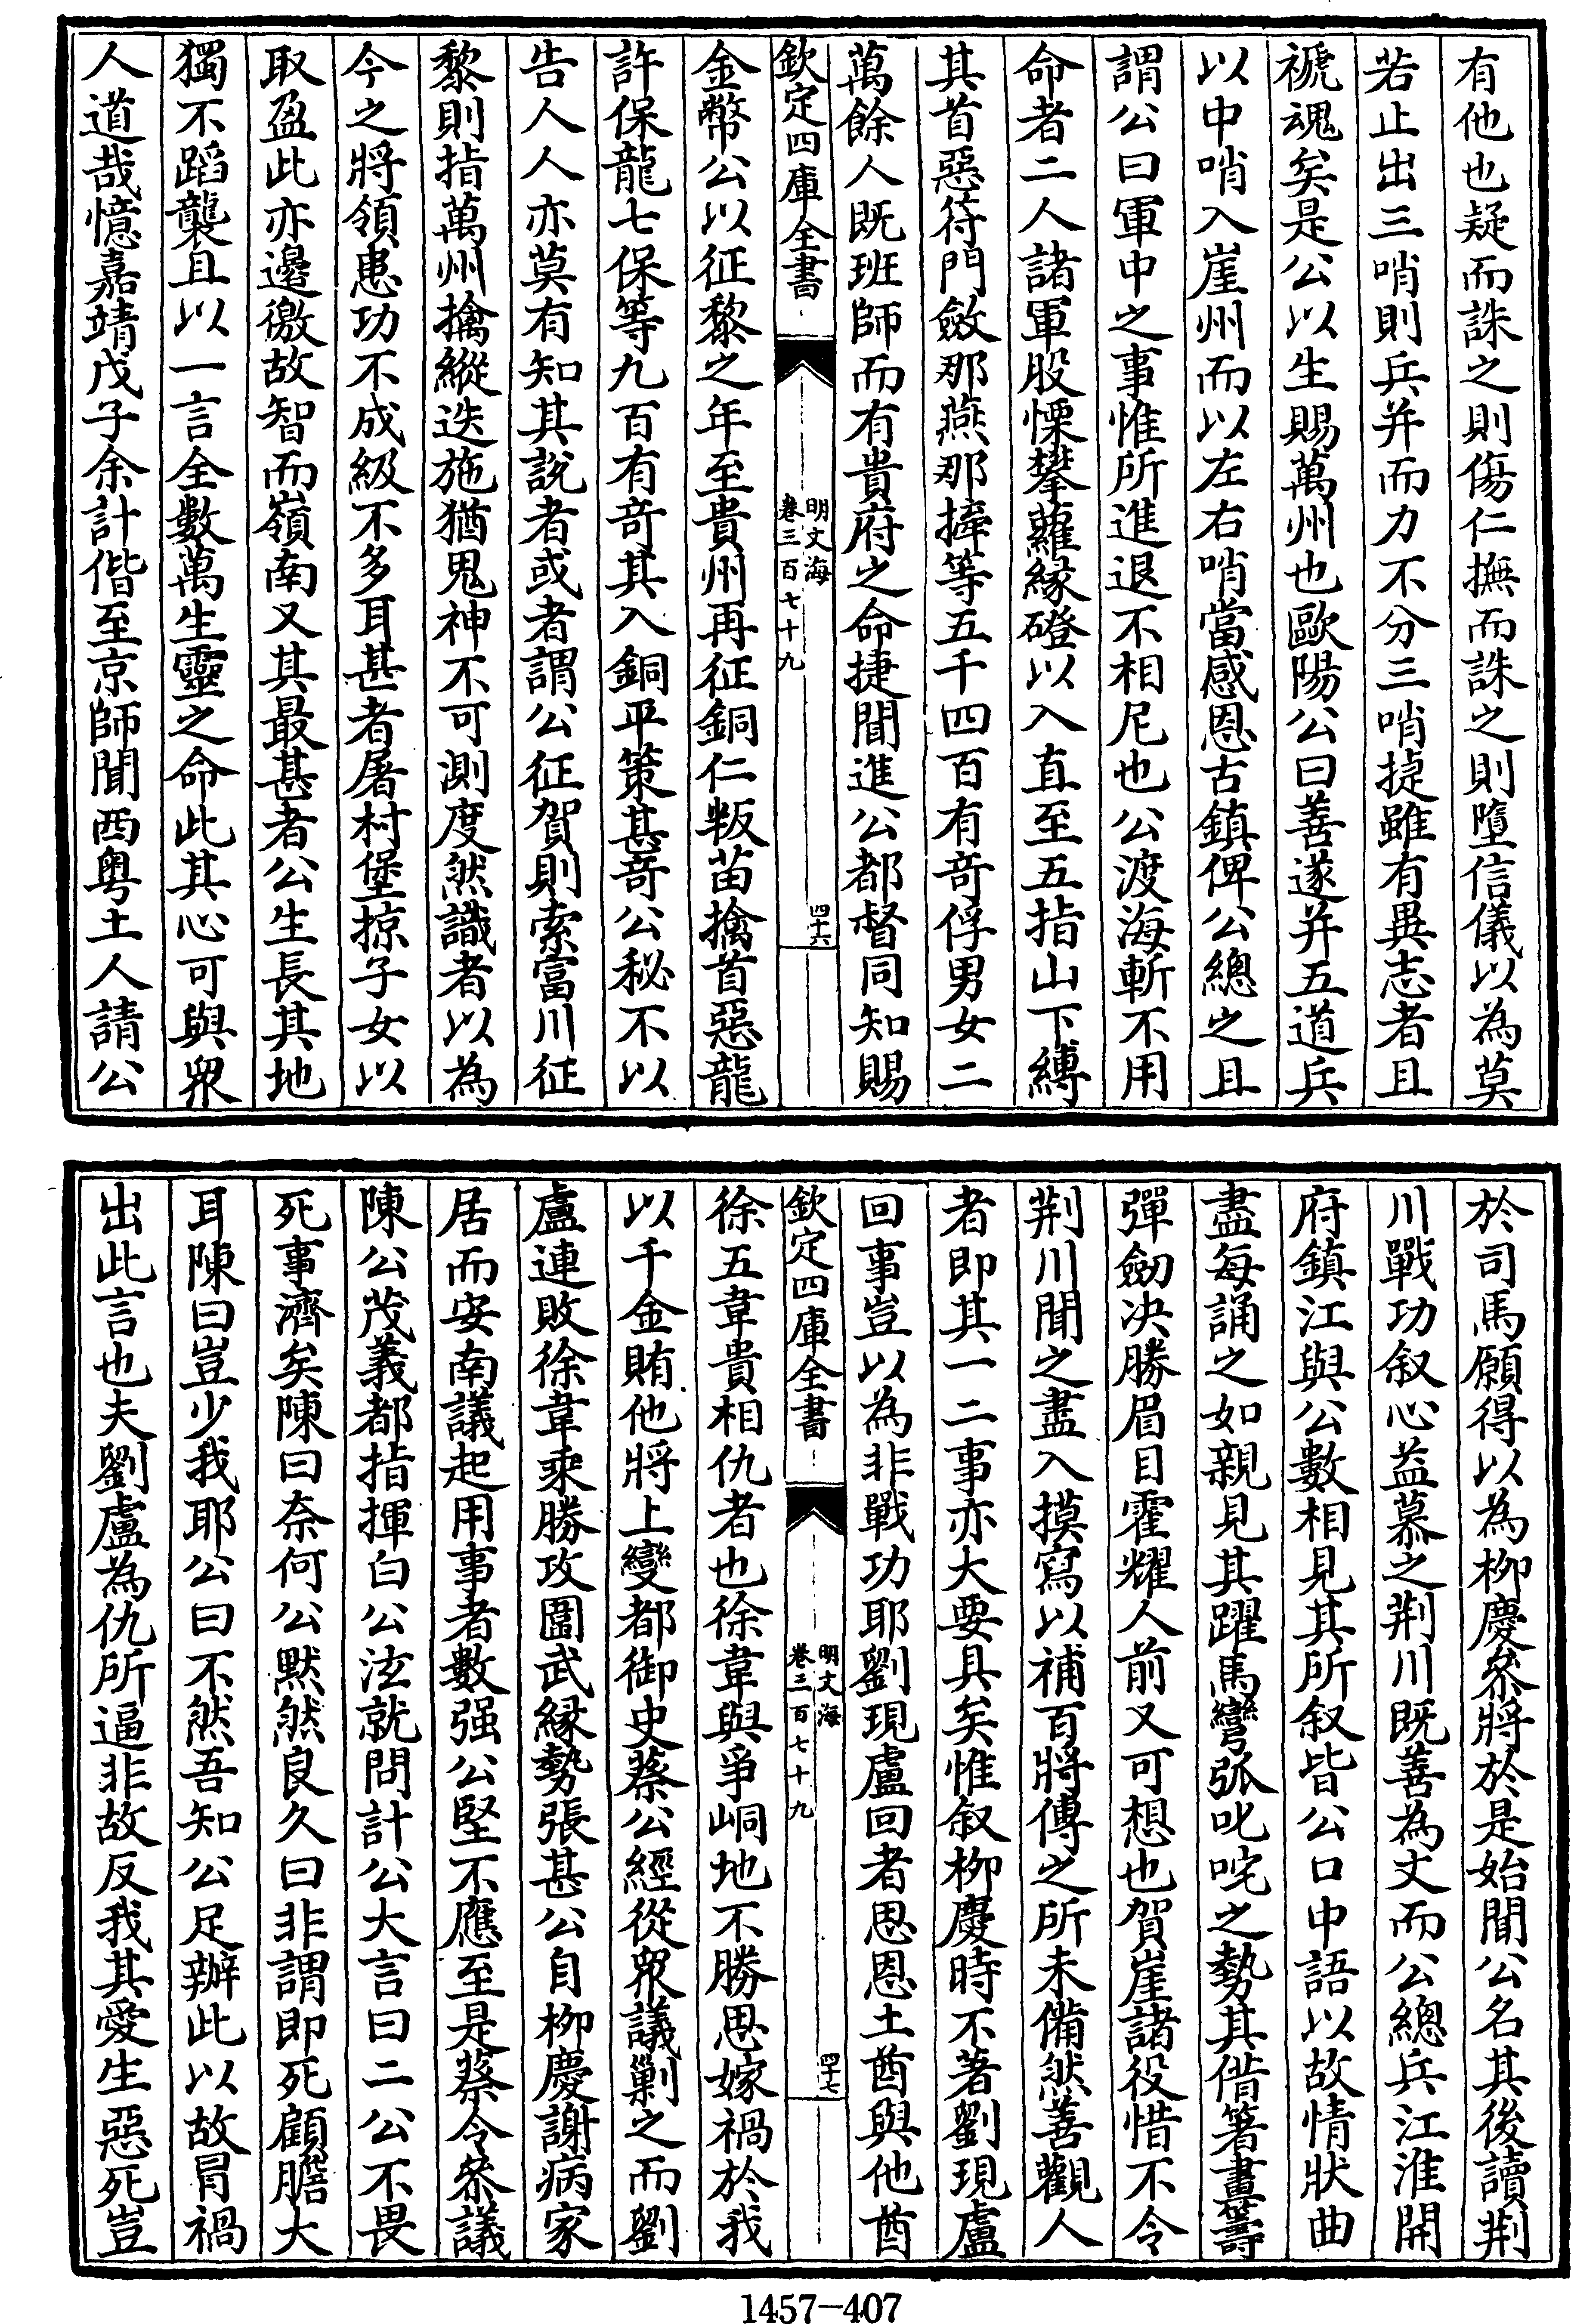 有他也疑而誅之則傷仁撫而誅之則墮信儀以為莫
若止出三哨則兵并而力不分三哨㨗雖有異志者且
褫魂矣是公以生賜萬州也歐陽公曰善遂并五道兵
以中哨入崖州而以左右哨當感恩古鎮俾公總之且
謂公曰軍中之事惟所進退不相尼也公渡海斬不用
命者二人諸軍股慄攀蘿緣磴以入直至五指山下縛
其首惡符門斂那燕那捧等五千四百有竒俘男女二
萬餘人既班師而有貴府之命捷聞進公都督同知賜
欽定四庫全書
明文海
卷三百七十九
四十六
金幣公以征黎之年至貴州再征銅仁叛苗擒首惡龍
許保龍七保等九百有竒其入銅平策甚竒公秘不以
告人人亦莫有知其說者或者謂公征賀則索富川征
黎則指萬州擒縱迭施猶鬼神不可測度然識者以為
今之將領患功不成級不多耳甚者屠村堡掠子女以
取盈此亦邊徼故智而嶺南又其最甚者公生長其地
獨不蹈襲且以一言全數萬生靈之命此其心可與衆
人道哉憶嘉靖戊子余計偕至京師聞西粤土人請公
於司馬願得以為柳慶叅將於是始聞公名其後讀荆
川戰功叙心益慕之荆川既善為文而公總兵江淮開
府鎮江與公數相見其所叙皆公口中語以故情狀曲
盡每誦之如親見其躍馬彎弧叱咤之勢其借箸畫籌
彈劒决勝眉目霍耀人前又可想也賀崖諸役惜不令
荆川聞之盡入摸寫以補百將傳之所未備然善觀人
者即其一二事亦大要具矣惟叙柳慶時不著劉現盧
回事豈以為非戰功耶劉現盧回者思恩土酋與他酋
欽定四庫全書
明文海
卷三百七十九
四十七
徐五韋貴相仇者也徐韋與爭峒地不勝思嫁禍於我
以千金賄他將上變都御史蔡公經從衆議剿之而劉
盧連敗徐韋乘勝攻圍武緣勢張甚公自柳慶謝病家
居而安南議起用事者數强公堅不應至是蔡令叅議
陳公茂義都指揮白公泫就問計公大言曰二公不畏
死事濟矣陳曰奈何公默然良久曰非謂即死顧膽大
耳陳曰豈少我耶公曰不然吾知公足辦此以故冐禍
出此言也夫劉盧為仇所逼非故反我其愛生惡死豈
1457—407